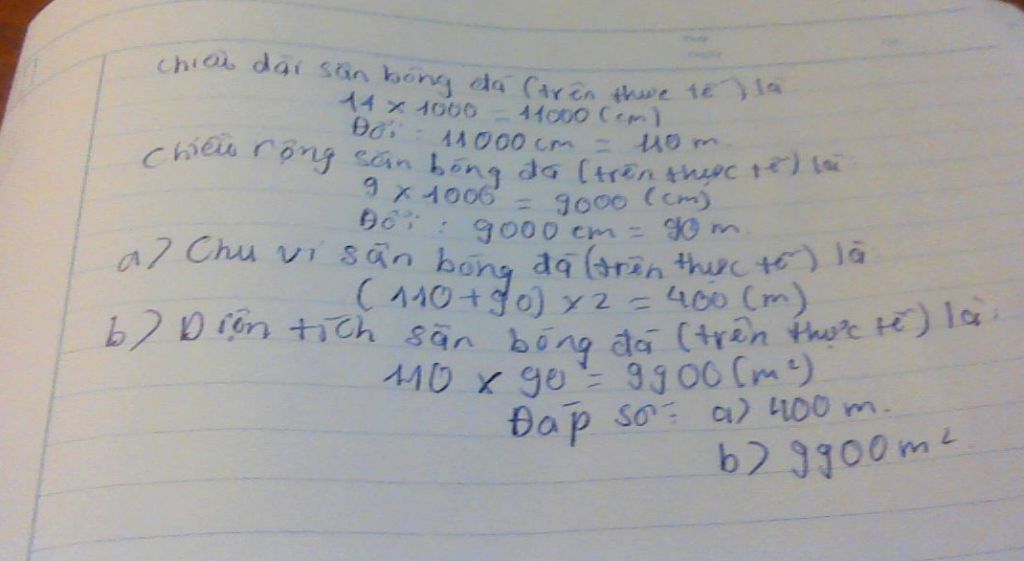 Chiều dài sân bóng đá (trên thực tế) là
11 x 1000 = 11000 (cm)
Đổi : 11000 cm = 110 m.
Chiều rộng sân bóng đá (trên thực tế) là:
9 x 1000 = 9000 (cm)
Đổi : 9000 cm = 90 m.
a) Chu vi sân bóng đá (trên thực tế) là
(110 + 90) x 2 = 400 (m)
b) Diện tích sân bóng đá (trên thực tế) là:
110 x 90 = 9900 (m²)
Đáp số: a) 400 m.
b) 9900 m².